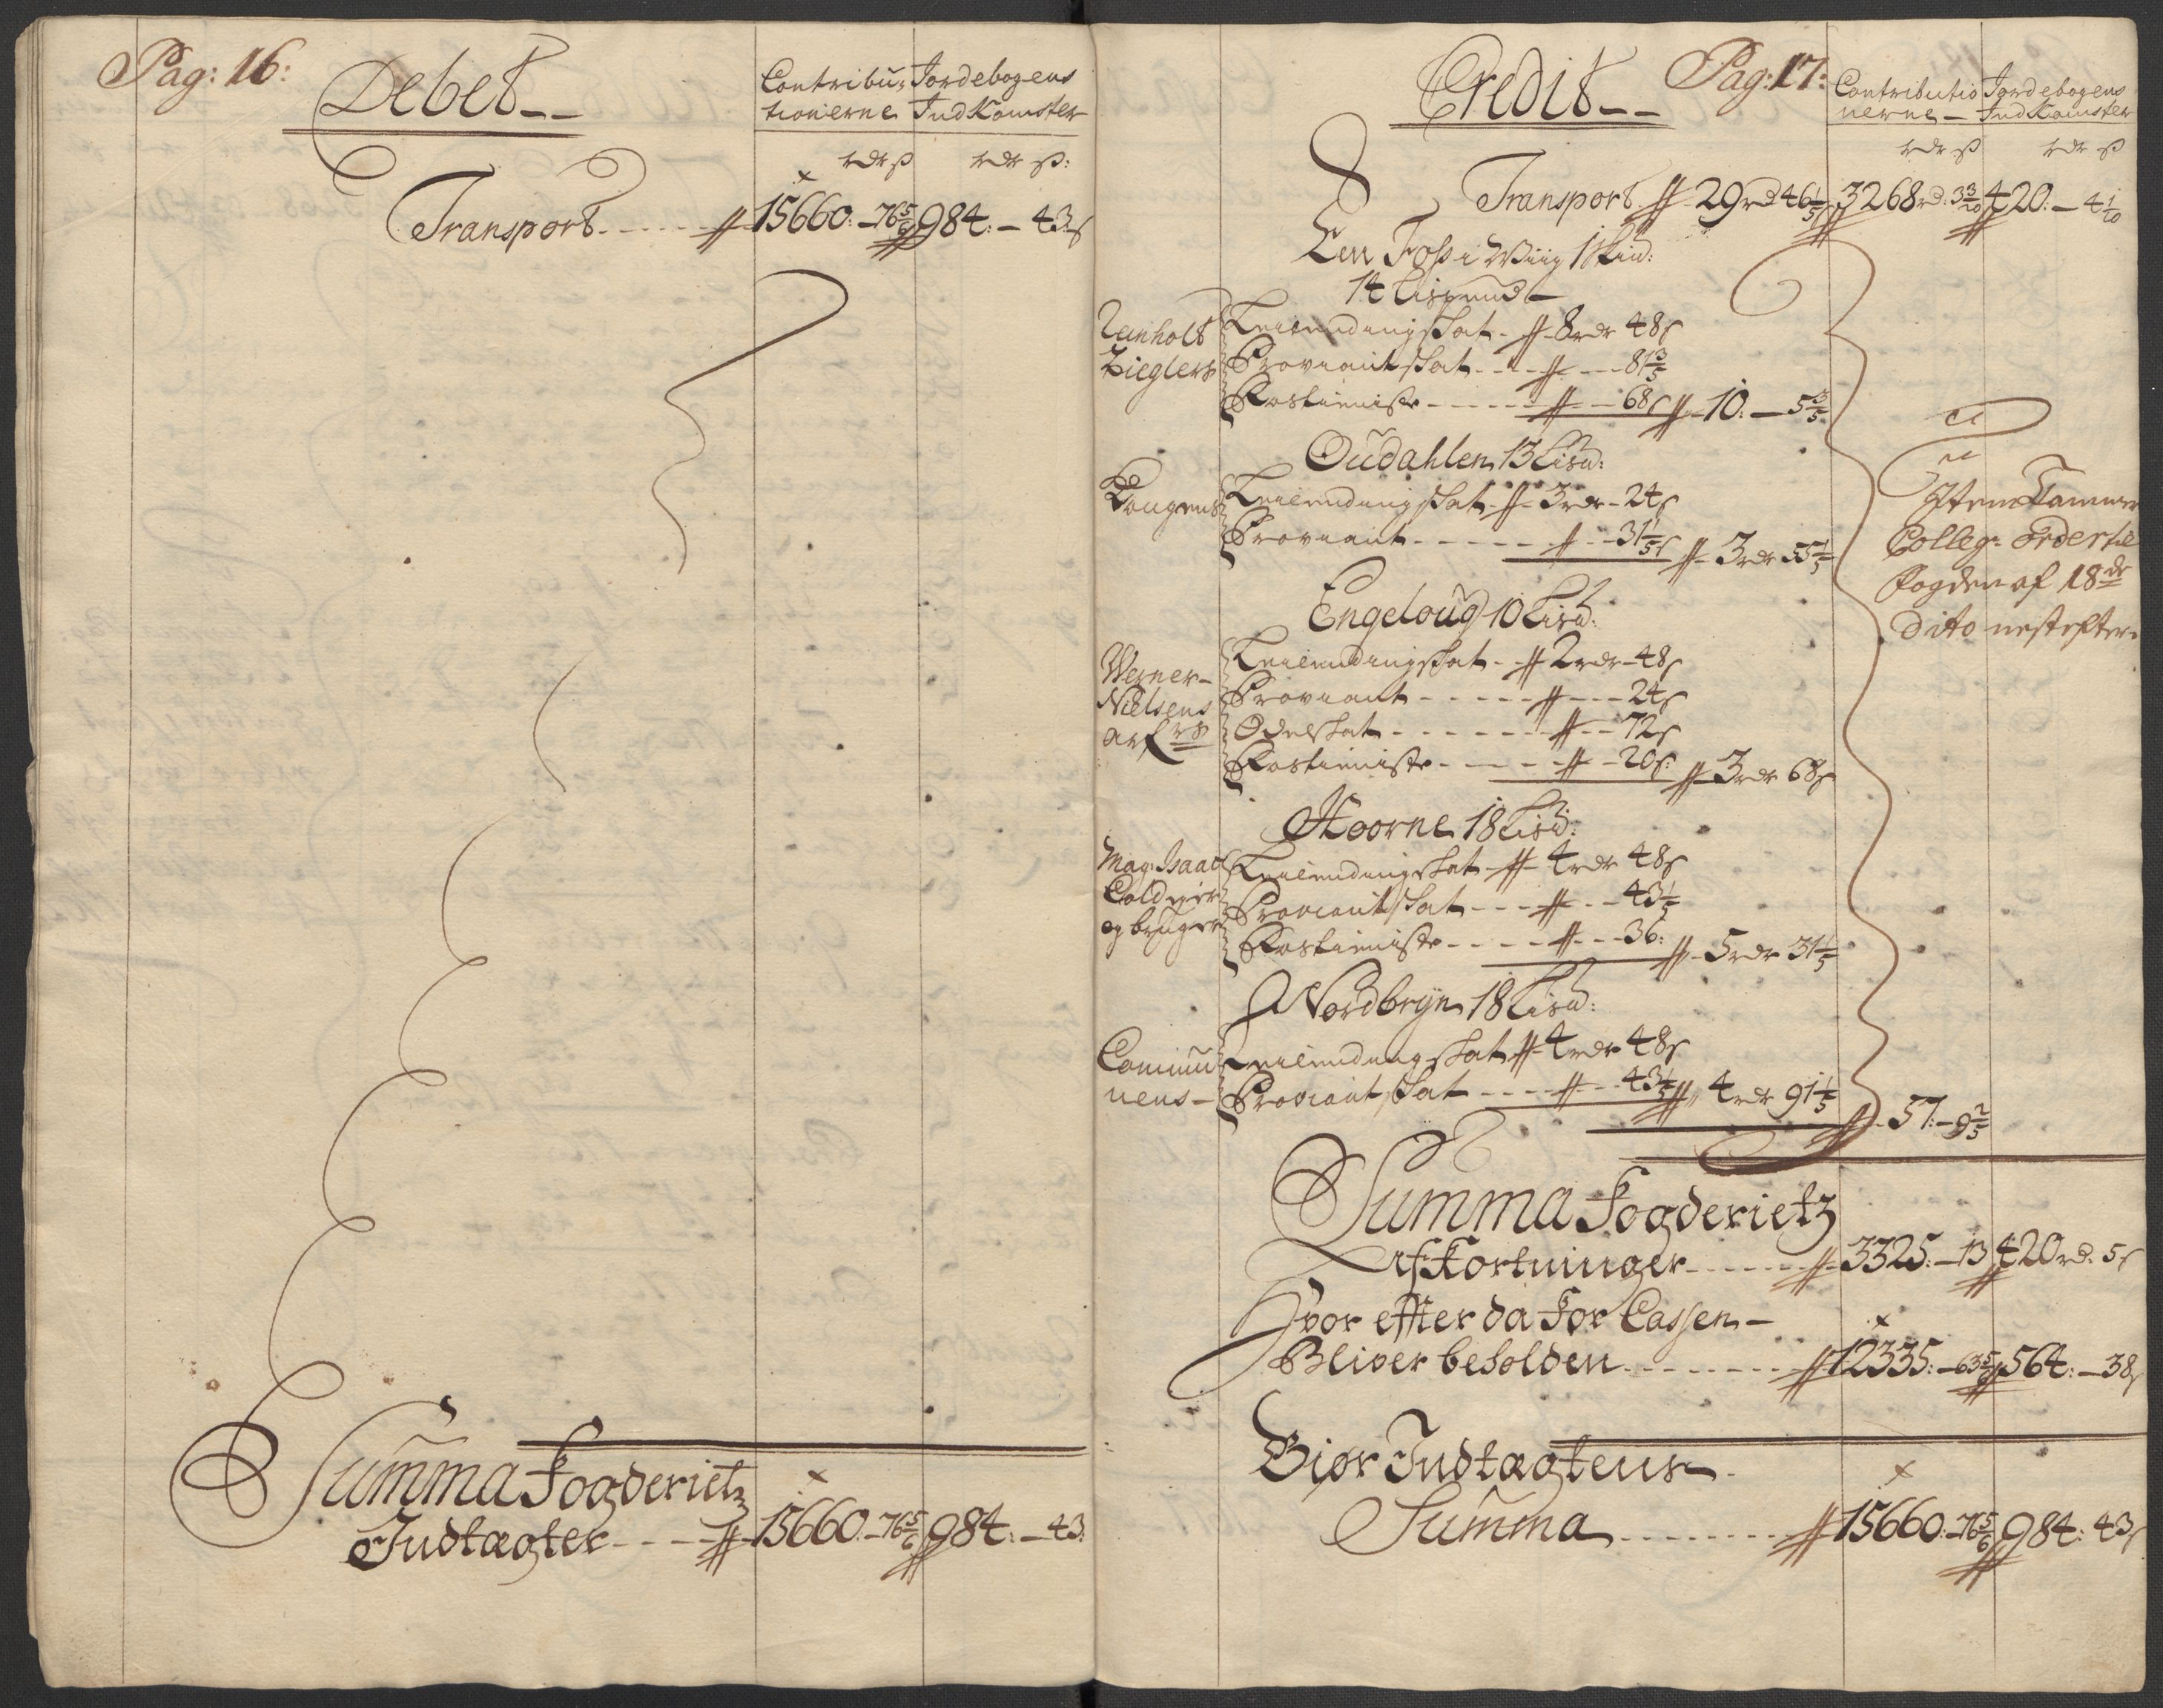 Pag: 16:
Debet
Contribu- Jordebogens
tionerne IndKomster
rdr ß rdr ß:
Transport 15660:-76 5/6 984:-43ß
Summa Fogderietz
Indtægter 15660.-76 5/6 984:-43:
Pag: 17:
Credit
Contributio Jordebogens
nerne IndKomster
rdr ß rdr ß
Transport 29rd 46 1/5ß 3268rd. 3 3/10 420:-4 1/10
Een Foss i Wiig 1 skind:
14 Lispund
Reinholt
Zieglers
Leilendingskat 8rdr 48ß
Proviantskat 81 3/5
Rostieniste 68ß 10:-5 3/5
Oudahlen 13 Lisd:
Kongens
Leilendingskat 3rdr-24ß
Proviant 31 1/5ß 3rdr 55 1/5
Engeloug 10 Lisd:
Werner
Nielsens
arfrs
Leilendingskat 2rdr-48ß
Proviant 24ß
Odelskat 72ß
Rostieniste 20ß: 3rdr 68ß
Hoorne 18 Lisd:
Mag: Isaac
Cold eier
og bruger
Leilendingskat 4rdr 48ß
Proviantskat 43 1/5
Rostieniste 36: 5rdr 31 1/5
Nordbryn 18 Lisd:
Commu
nens
Leilendingskat 4rdr 48ß
Proviantskat 43 1/5 4rdr 91 1/5
57:-9 2/5
Item Kammer
Colleg: Order til
fogden af 18de
dito nestefter
Summa Fogderietz
afKortninger 3325:-13 420rd. 5ß
Hvor effter da For Cassen
Bliver beholden 12335:-63 5/6 564:-38ß
Giør Indtægtens
Summa 15660:-76 5/6 984: 43ß